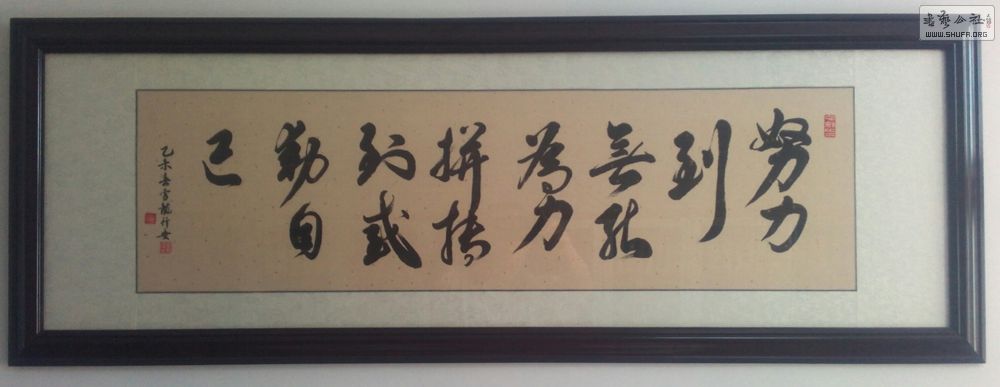 努力
到
無能
為力
拼搏
到感
動自
己
乙未
書藝公社
WWW.SHUFA.ORG